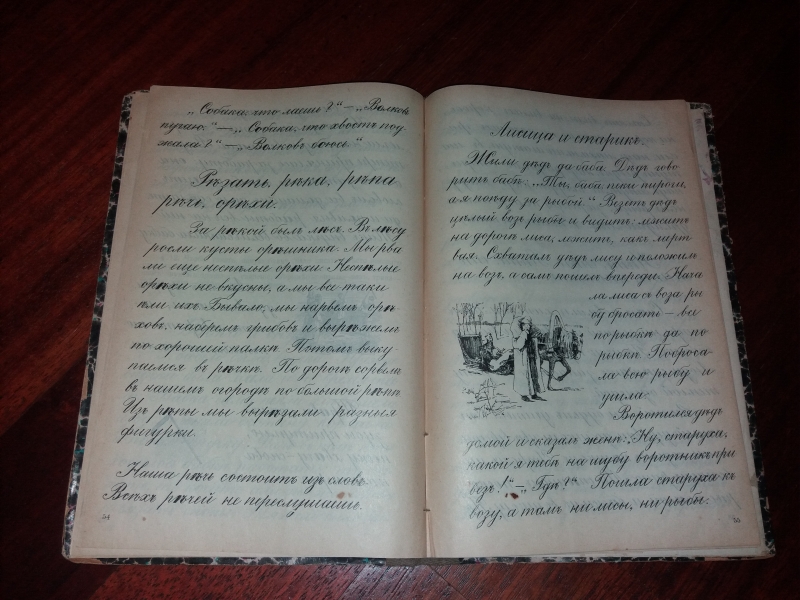 „Собака, что лаешь?“ — „Волковъ
пугаю.“ — „Собака, что хвостъ под
жала?“ — „Волковъ боюсь.“
Рѣзать, рѣка, рѣпа
рѣчь, орѣхи.
За рѣкой былъ лѣсъ. Въ лѣсу
росли кусты орѣшника. Мы рва
ли еще неспѣлые орѣхи. Неспѣлые
орѣхи не вкусны, а мы все таки
ѣли ихъ. Бывало, мы нарвемъ орѣ
ховъ, наберемъ грибовъ и вырѣжемъ
по хорошей палкѣ. Потомъ выку
паемся въ рѣчкѣ. По дорогѣ сорвемъ
въ нашемъ огородѣ по большой рѣпѣ.
Изъ рѣпы мы вырѣзали разныя
фигурки.
Наша рѣчь состоитъ изъ словъ.
Всѣхъ рѣчей не переслушаешь.
54
Лисица и старикъ.
Жили дѣдъ да баба. Дѣдъ гово
ритъ бабѣ: „Ты, баба, пеки пироги,
а я поѣду за рыбой.“ Везетъ дѣдъ
цѣлый возъ рыбы и видитъ: лежитъ
на дорогѣ лиса, лежитъ, какъ мерт
вая. Схватилъ дѣдъ лису и положилъ
на возъ, а самъ пошелъ впереди. Нача
ла лиса съ воза ры
бу бросать — все
по рыбкѣ да по
рыбкѣ. Поброса-
ла всю рыбу и
ушла.
Воротился дѣдъ
домой и сказалъ женѣ: „Ну, старуха,
какой я тебѣ на шубу воротникъ при
везъ!“ — „Гдѣ?“ Пошла старуха къ
возу, а тамъ ни лисы, ни рыбы.
55